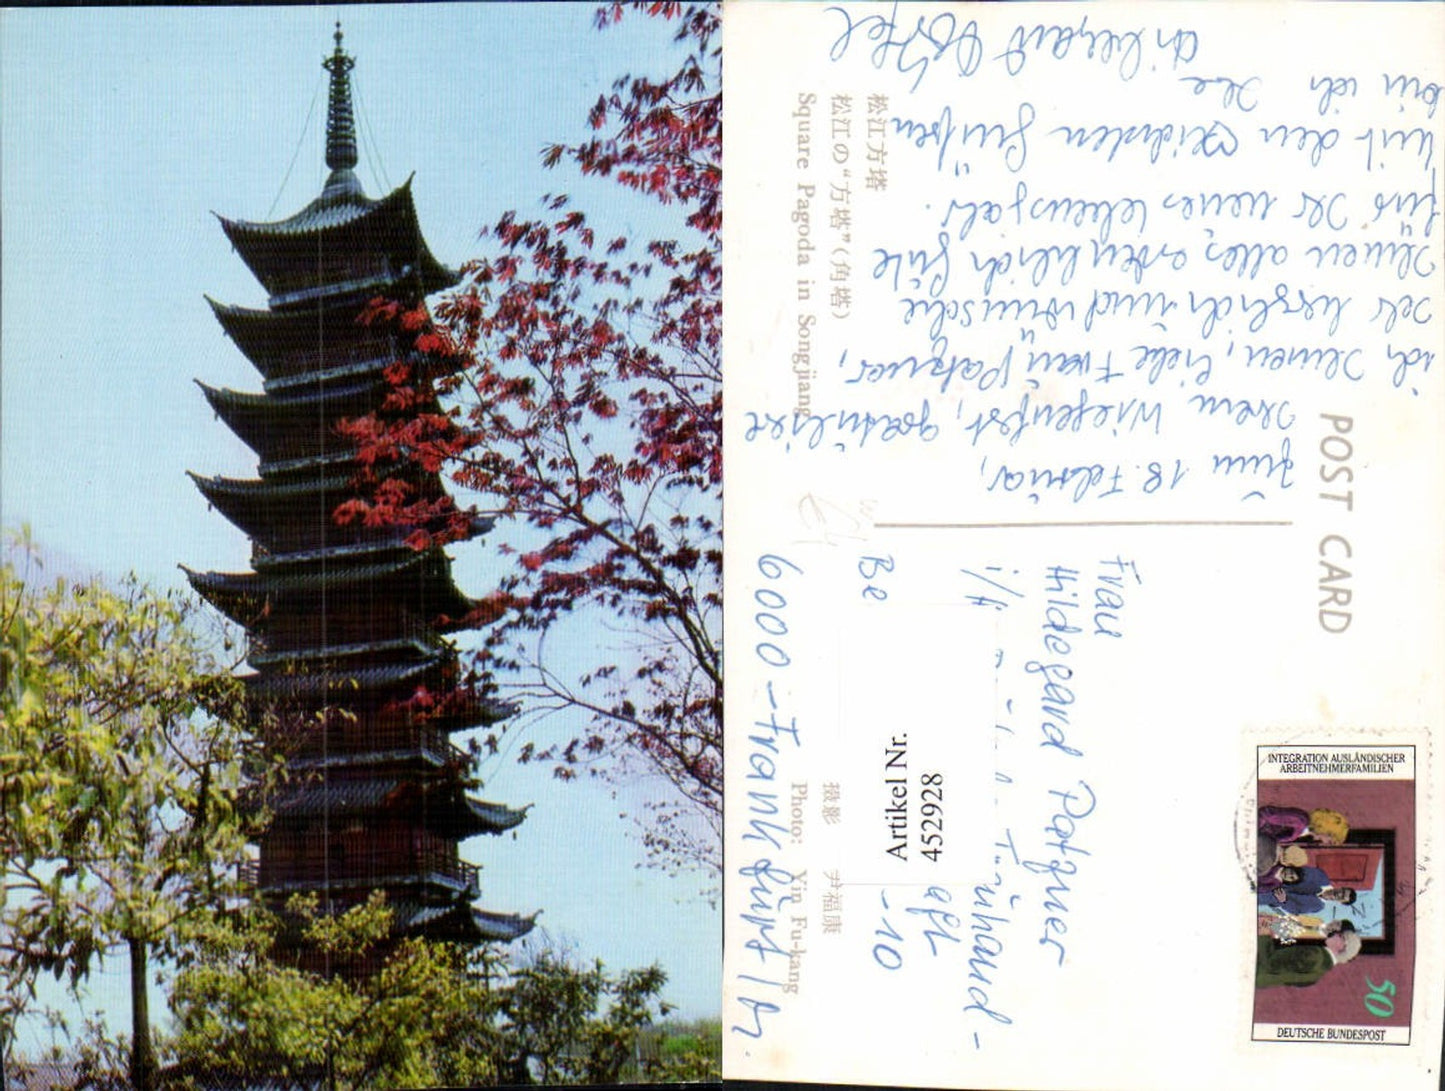 POST CARD
松江方塔
松江の“方塔”(角塔)
Square Pagoda in Songjiang
Zum 18. Februar,
Ihrem Wiegenfest, gratuliere
ich Ihnen, liebe Frau Patzner,
sehr herzlich und wünsche
Ihnen alles erdenklich Gute
fürs neue Lebensjahr.
Mit den Grüßen
bin ich Ihre
Frau
Hildegard Patzner
6000-Frankfurt
-10
摄影 尹福康
Photo: Yin Fu-kang
Artikel Nr.
4529928
INTEGRATION AUSLÄNDISCHER
ARBEITNEHMERFAMILIEN
50
DEUTSCHE BUNDESPOST